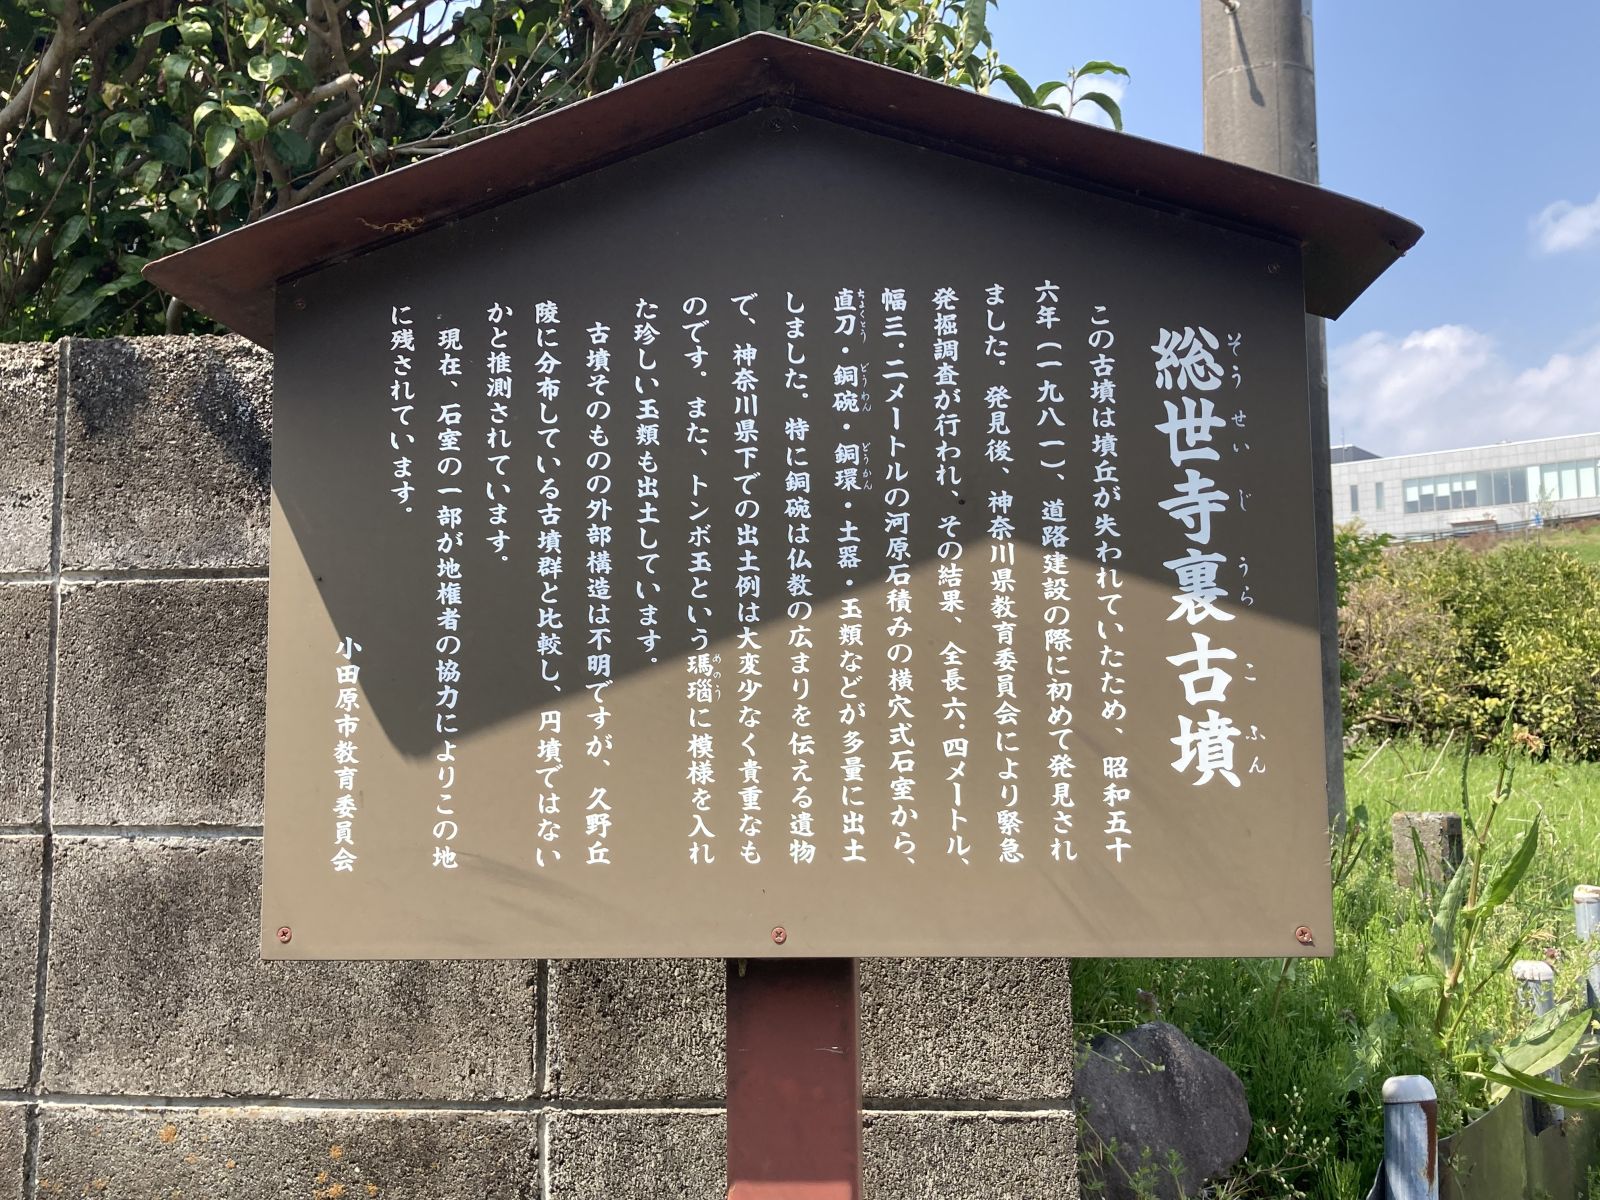 総世寺裏古墳
そうせいじうらこふん
この古墳は墳丘が失われていたため、昭和五十
六年(一九八一)、道路建設の際に初めて発見され
ました。発見後、神奈川県教育委員会により緊急
発掘調査が行われ、その結果、全長六・四メートル、
幅三・二メートルの河原石積みの横穴式石室から、
直刀・銅碗・銅環・土器・玉類などが多量に出土
ちょくとう どうわん どうかん
しました。特に銅碗は仏教の広まりを伝える遺物
で、神奈川県下での出土例は大変少なく貴重なも
のです。また、トンボ玉という瑪瑙に模様を入れ
めのう
た珍しい玉類も出土しています。
古墳そのものの外部構造は不明ですが、久野丘
陵に分布している古墳群と比較し、円墳ではない
かと推測されています。
現在、石室の一部が地権者の協力によりこの地
に残されています。
小田原市教育委員会